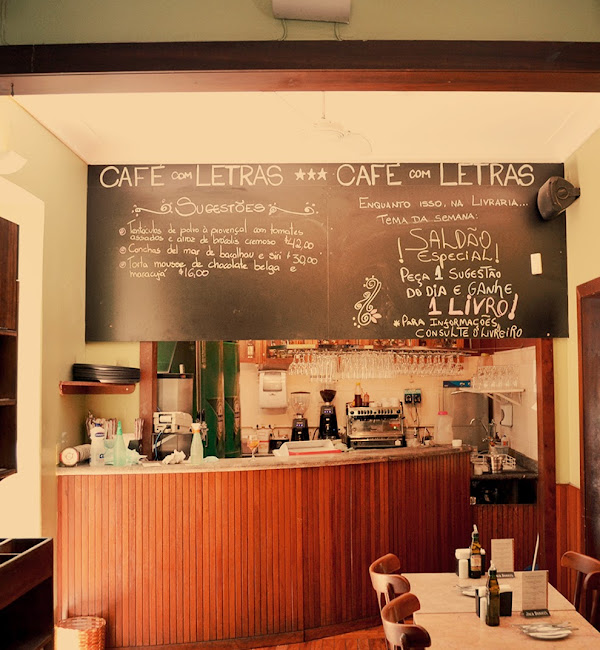 CAFÉ COM LETRAS *** CAFÉ COM LETRAS
SUGESTÕES
Tentáculos de polvo à provençal com tomates
assados e arroz de brócolis cremoso $42,00
Conchas del mar de bacalhau e siri $30,00
Torta mousse de chocolate belga e
maracujá $16,00
ENQUANTO ISSO, NA LIVRARIA...
TEMA DA SEMANA:
¡SALDÃO
ESPECIAL!
PEÇA 1 SUGESTÃO
DO DIA E GANHE
1 LIVRO!
*PARA INFORMAÇÕES,
CONSULTE O LIVREIRO